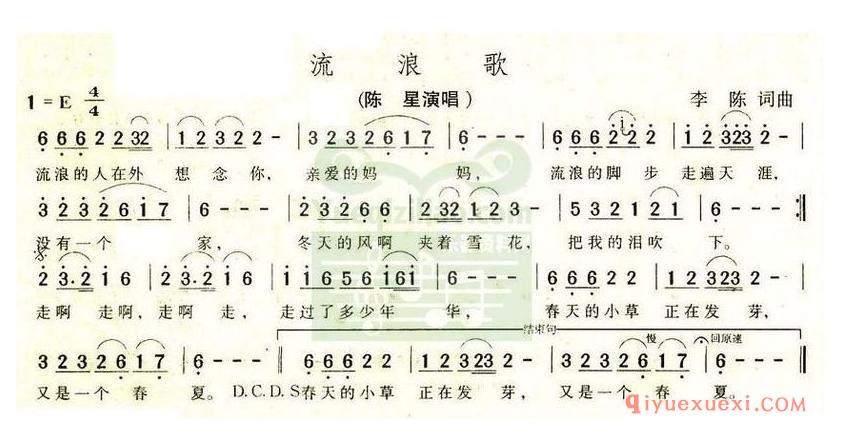 流浪歌
1=E 4/4 (陈 星演唱) 李 陈 词曲
6 6 6 2 2 32 | 1 2 3 2 2 - | 3 2 3 2 6 1 7 | 6 - - - | 6 6 6 2 2 2 | 1 2 323 2 - |
流浪的人在外 想念你, 亲爱的妈 妈, 流浪的脚步 走遍天涯,
3 2 3 2 6 1 7 | 6 - - - | 2 3 2 6 6 | 2 32 1 2 3 - | 5 3 2 1 2 1 | 6 - - :||
没有一个 家, 冬天的风啊 夹着雪花, 把我的泪吹 下。
2 3·2 1 6 | 2 3·2 1 6 | 1 1 6 5 6 1 6 1 | 6 - - - | 6 6 6 2 2 | 1 2 323 2 - |
走啊 走啊,走啊 走, 走过了多少年 华, 春天的小草 正在发芽,
结束句
慢 回原速
3 2 3 2 6 1 7 | 6 - - - | 6 6 6 2 2 | 1 2 323 2 - | 3 2 3 2 6 1 7 | 6 - - - ||
又是一个 春 夏。 D.C.D.S春天的小草 正在发 芽, 又是一个 春 夏。
Qiyuexuexi.com